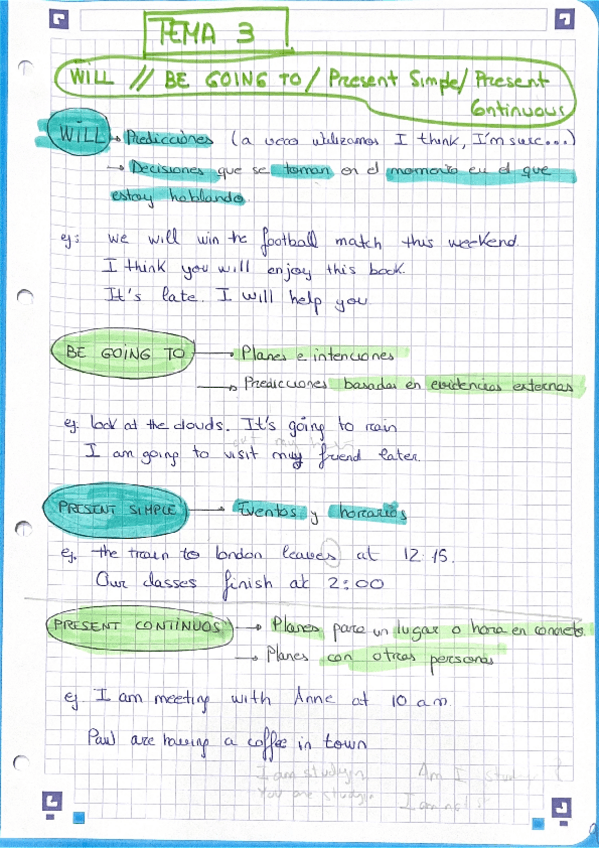 TEMA 3
WILL // BE GOING TO / Present Simple / Present
Continuous
WILL → Predicciónes (a veces utilizamos I think, I'm sure...)
→ Decisiones que se toman en el momento en el que
estoy hablando.
ej: we will win the football match this weekend.
I think you will enjoy this book.
It's late. I will help you
BE GOING TO → Planes e intenciones
→ Predicciones basadas en evidencias externas
ej. look at the clouds. It's going to rain
I am going to visit my friend later.
PRESENT SIMPLE → Eventos y horarios
ej. the train to london leaves at 12:15.
Our classes finish at 2:00
PRESENT CONTINUOS → Planes para un lugar o hora en concreto.
→ Planes con otras personas
ej I am meeting with Anne at 10 a.m.
Paul are having a coffee in town
I am
Am I
You are
I am not